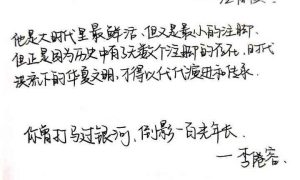 他是大时代里最鲜活、但又是最小的注脚,
但正是因为历史中有了无数个注脚的存在,时代
洪流下的华夏文明,才得以代代演进和传承。
你曾打马过银河,倒影一百光年长。
—李隆容